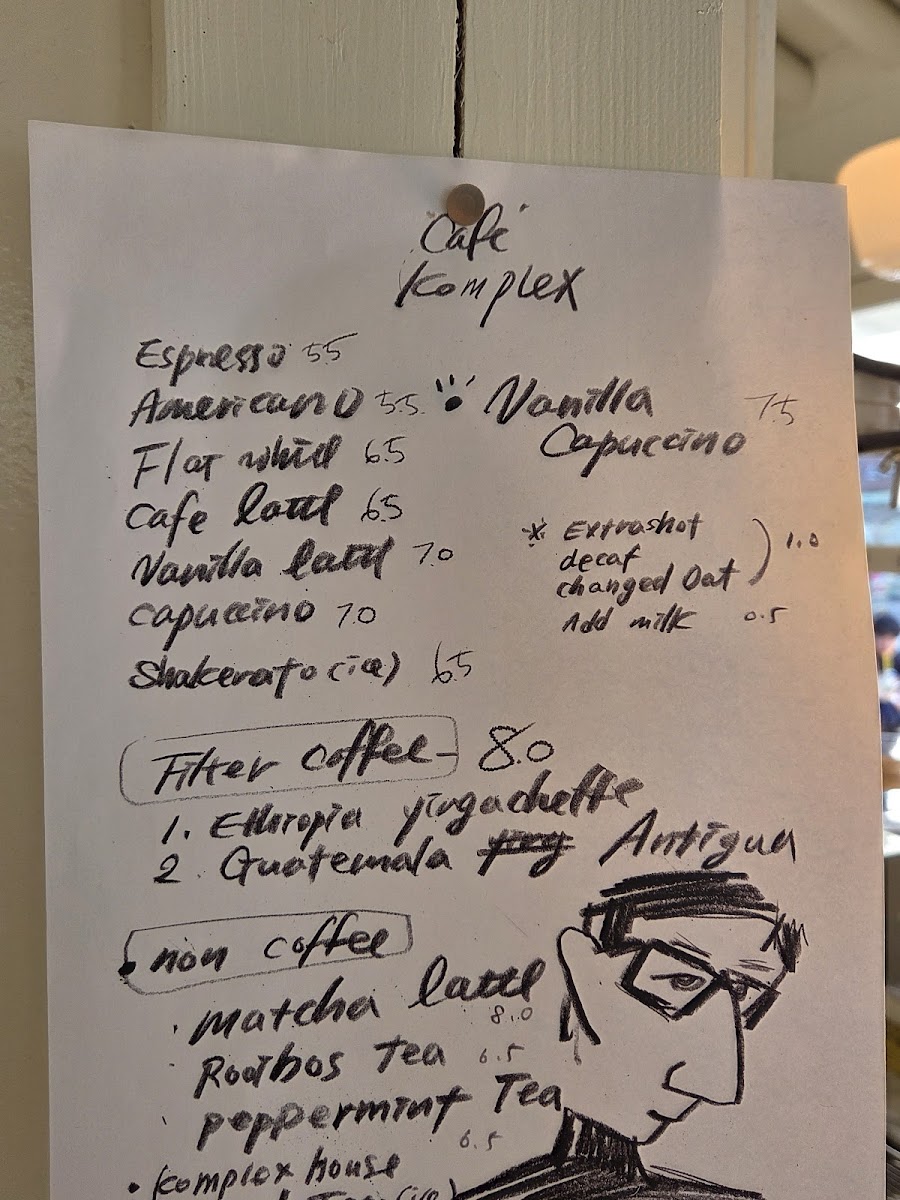 "Café"
Komplex
Espresso 5.5
Americano 5.5
Flat white 6.5
Cafe latte 6.5
Vanilla latte 7.0
capuccino 7.0
Shakerato (ice) 6.5
Vanilla 7.5
Capuccino
* Extrashot
decaf
changed Oat ) 1.0
Add milk 0.5
Filter coffee - 8.0
1. Ethiopia yirgacheffe
2. Guatemala Antigua
• non coffee
. Matcha latte
8.0
Rooibos Tea 6.5
. peppermint Tea
6.5
• Komplex house